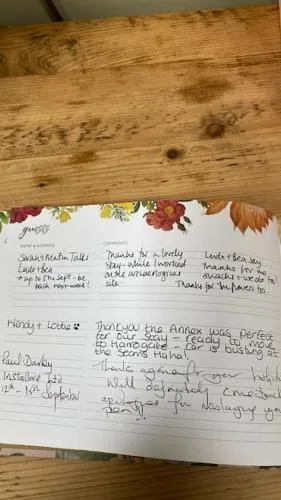 guests
NAME & ADDRESS
COMMENTS
Sarah + Martin Talks
Ludo + Bea
→ up to 5th Sept - be
back next week!
Thanks for a lovely
stay - while I worked
on the archaeological
site.
Ludo + Bea say
Thanks for the
snacks + we do too!
Thanks for the flowers too.
Wendy + Lottie
Thankyou the Annex was perfect
for our stay - ready to move
to Harrogate - car is busting at
the seams Haha!
Paul Darley
Installore Ltd
12th - 15th September
Thank again for your
Will definitely come back
apologies for misplacing your
pen!!